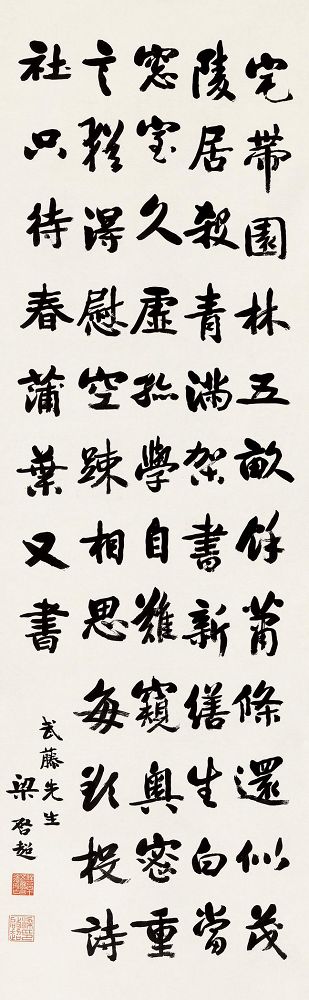 宅帶園林五畝餘蕭條還似茂
陵居殺青滿架書新繕生白當
窓室久虛孤學自難窺奧密重
言猶得慰空踈相思每欲投詩
社只待春蒲葉又書
武藤先生
梁启超